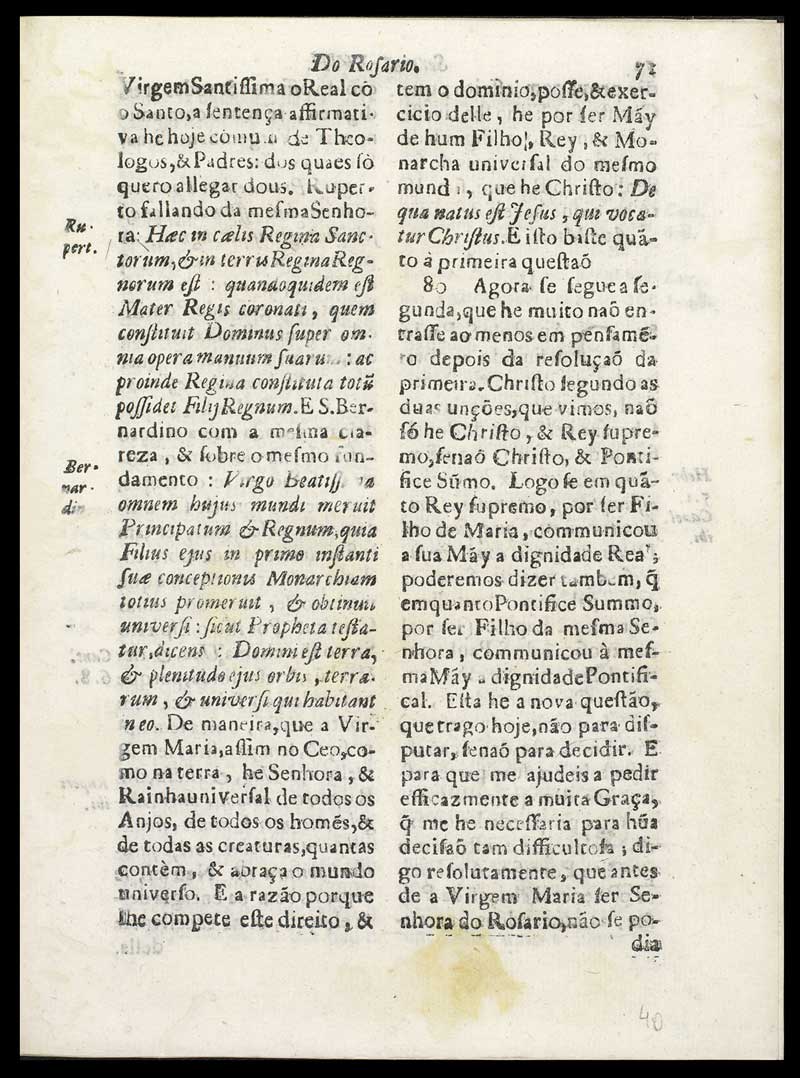 Do Roſario. 71
Virgem Santiſſima o Real cõ
o Santo, a ſentença affirmati-
va he hoje cõmua de Theo-
logos, & Padres: dos quaes ſó
quero allegar dous. Ruper-
to fallando da meſma Senho-
Ru-
pert.
ra: Hæc in cælis Regina Sanc-
torum, & in terris Regina Reg-
norum eſt : quandoquidem eſt
Mater Regis coronati, quem
conſtituit Dominus ſuper om-
nia opera manuum ſuarum : ac
proinde Regina conſtituta totũ
poſſidet Filij Regnum. E S. Ber-
nardino com a meſma cla-
Ber-
nar-
din
reza, & ſobre o meſmo fun-
damento : Virgo beatiſſima
omnem hujus mundi meruit
Principatum & Regnum, quia
Filius ejus in primo inſtanti
ſuæ conceptionis Monarchiam
totius promeruit, & obtinuit
univerſi : ſicut Propheta teſta-
tur, dicens : Domini eſt terra,
& plenitudo ejus orbis, terra-
rum, & univerſi qui habitant
n eo. De maneira, que a Vir-
gem Maria, aſſim no Ceo, co-
mo na terra, he Senhora, &
Rainha univerſal de todos os
Anjos, de todos os homẽs, &
de todas as creaturas, quantas
contèm, & abraça o mundo
univerſo. E a razão porque
lhe compete eſte direito, &
tem o dominio, poſſe, & exer-
cicio delle, he por ſer Máy
de hum Filho, Rey, & Mo-
narcha univerſal do meſmo
mundo, que he Chriſto : De
qua natus eſt Jeſus, qui voca-
tur Chriſtus. E iſto baſte quã-
to á primeira queſtaõ
80 Agora ſe ſegue a ſe-
gunda, que he muito naõ en-
traſſe ao menos em penſamẽ-
to depois da reſoluçaõ da
primeira. Chriſto ſegundo as
duas unções, que vimos, naõ
ſó he Chriſto, & Rey ſupre-
mo, ſenaõ Chriſto, & Ponti-
fice Sũmo. Logo ſe em quã-
to Rey ſupremo, por ſer Fi-
lho de Maria, communicou
a ſua Máy a dignidade Real;
poderemos dizer tambem, q̃
emquanto Pontifice Summo,
por ſer Filho da meſma Se-
nhora, communicou à meſ-
ma Máy a dignidade Pontifi-
cal. Eſta he a nova queſtão,
que trago hoje, não para diſ-
putar, ſenaõ para decidir. E
para que me ajudeis a pedir
efficazmente a muita Graça,
q̃ me he neceſſaria para hũa
deciſaõ tam difficultoſa ; di-
go reſolutamente, que antes
de a Virgem Maria ſer Se-
nhora do Roſario, não ſe po-
dia
40